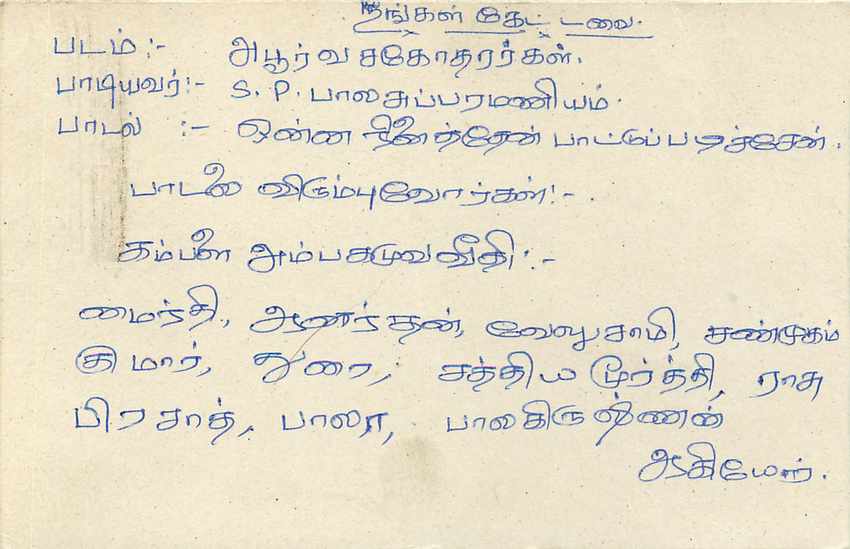 நீங்கள் கேட்டவை.
படம் :- அபூர்வ சகோதரர்கள்.
பாடியவர் :- S. P. பாலசுப்பரமணியம்.
பாடல் :- ஒன்ன நினைத்தேன் பாட்டுப்படிச்சேன்.
பாடலை விரும்புவோர்கள் :-
கம்பளை அம்பகமுவ வீதி :-
மைந்தி, ஆனந்தன், வேலுசாமி, சண்முகம்
குமார், துரை, சத்திய மூர்த்தி, ராசு
பிரசாத், பாலா, பாலகிருஷ்ணன்
ஆகியோர்.